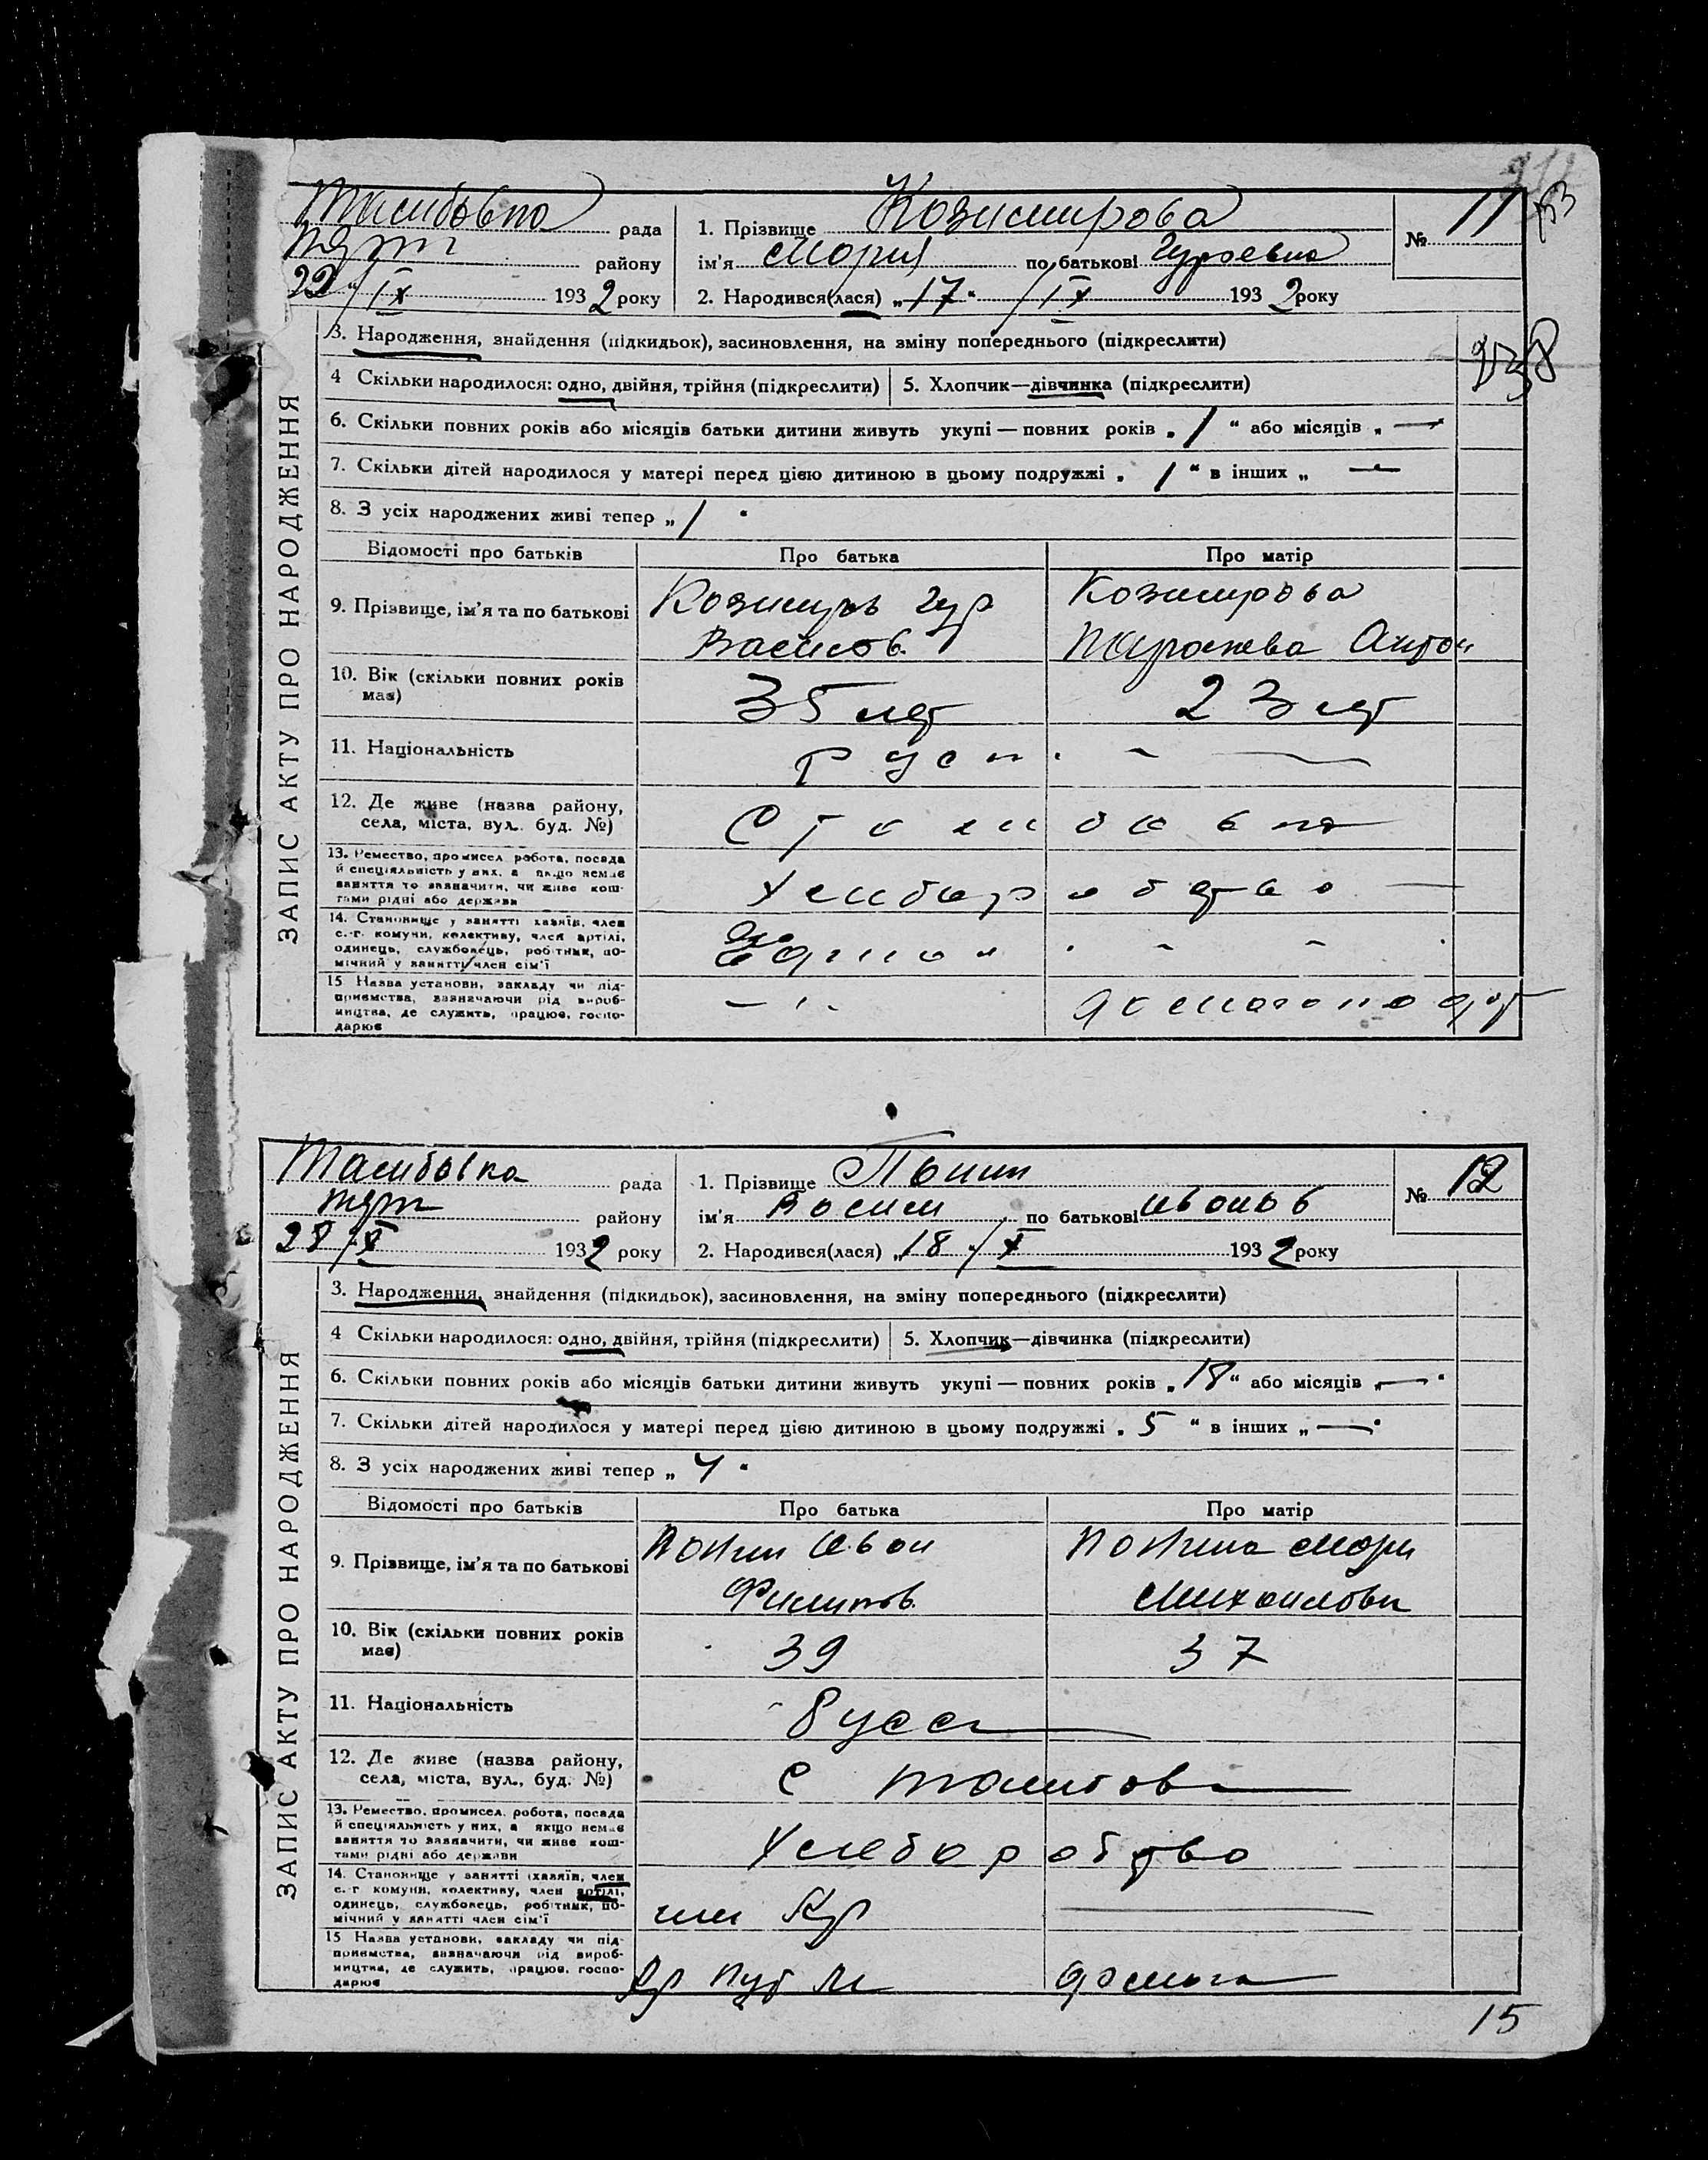 Тамбовка рада
району
22 / IX 1932 року
1. Прізвище Козимирова
ім'я Мория по батькові Гуроевна
2. Народився(лася) „17" / IX 1932 року
№ 11
3. Народження, знайдення (підкидьок), засиновлення, на зміну попереднього (підкреслити)
238
4 Скільки народилося: одно, двійня, трійня (підкреслити)
5. Хлопчик—дівчинка (підкреслити)
6. Скільки повних років або місяців батьки дитини живуть укупі — повних років „1" або місяців „ —
7. Скільки дітей народилося у матері перед цією дитиною в цьому подружжі „1" в інших „ —
8. З усіх народжених живі тепер „1"
ЗАПИС АКТУ ПРО НАРОДЖЕННЯ
Відомості про батьків Про батька Про матір
9. Прізвище, ім'я та по батькові
Козимиров Гур
Василов.
Козимирова
Антон
10. Вік (скільки повних років має)
35 лет
23 лет
11. Національність
руск.
12. Де живе (назва району,
села, міста, вул. буд. №)
С Тамбовка
13. Ремество, промисел робота, посада
й спеціяльність у них, а якщо немає
заняття то зазначити, чи живе кош-
тами рідні або держави
Хлиборобтво
14. Становище у занятті хазяїн, член
с.-г. комуни, колективу, член артілі,
одинець, службовець, робітник, по-
мічний у занятті член сім'ї
15 Назва установи, закладу чи під-
приємства, зазначаючи рід вироб-
ництва, де служить, працює, госпо-
дарює
Тамбовка рада
району
28 / X 1932 року
1. Прізвище Понин
ім'я Восили по батькові Ивонов
2. Народився(лася) „18" / X 1932 року
№ 12
3. Народження, знайдення (підкидьок), засиновлення, на зміну попереднього (підкреслити)
4 Скільки народилося: одно, двійня, трійня (підкреслити)
5. Хлопчик—дівчинка (підкреслити)
6. Скільки повних років або місяців батьки дитини живуть укупі — повних років „18" або місяців „ —
7. Скільки дітей народилося у матері перед цією дитиною в цьому подружжі „5" в інших „ —
8. З усіх народжених живі тепер „4"
ЗАПИС АКТУ ПРО НАРОДЖЕННЯ
Відомості про батьків Про батька Про матір
9. Прізвище, ім'я та по батькові
Понин Ивон
Филипов.
Понина Мори
Михоиловн
10. Вік (скільки повних років має)
39
37
11. Національність
Русск
12. Де живе (назва району,
села, міста, вул., буд. №)
с Тамбовк
13. Ремество, промисел, робота, посада
й спеціяльність у них, а якщо немає
заняття то зазначити, чи живе кош-
тами рідні або держави
Хлеборобтво
14. Становище у занятті (хазяїн, член
с.-г. комуни, колективу, член артілі,
одинець, службовець, робітник, по-
мічний у занятті член сім'ї
15 Назва установи, закладу чи під-
приємства, зазначаючи рід вироб-
ництва, де служить, працює, госпо-
дарює
15